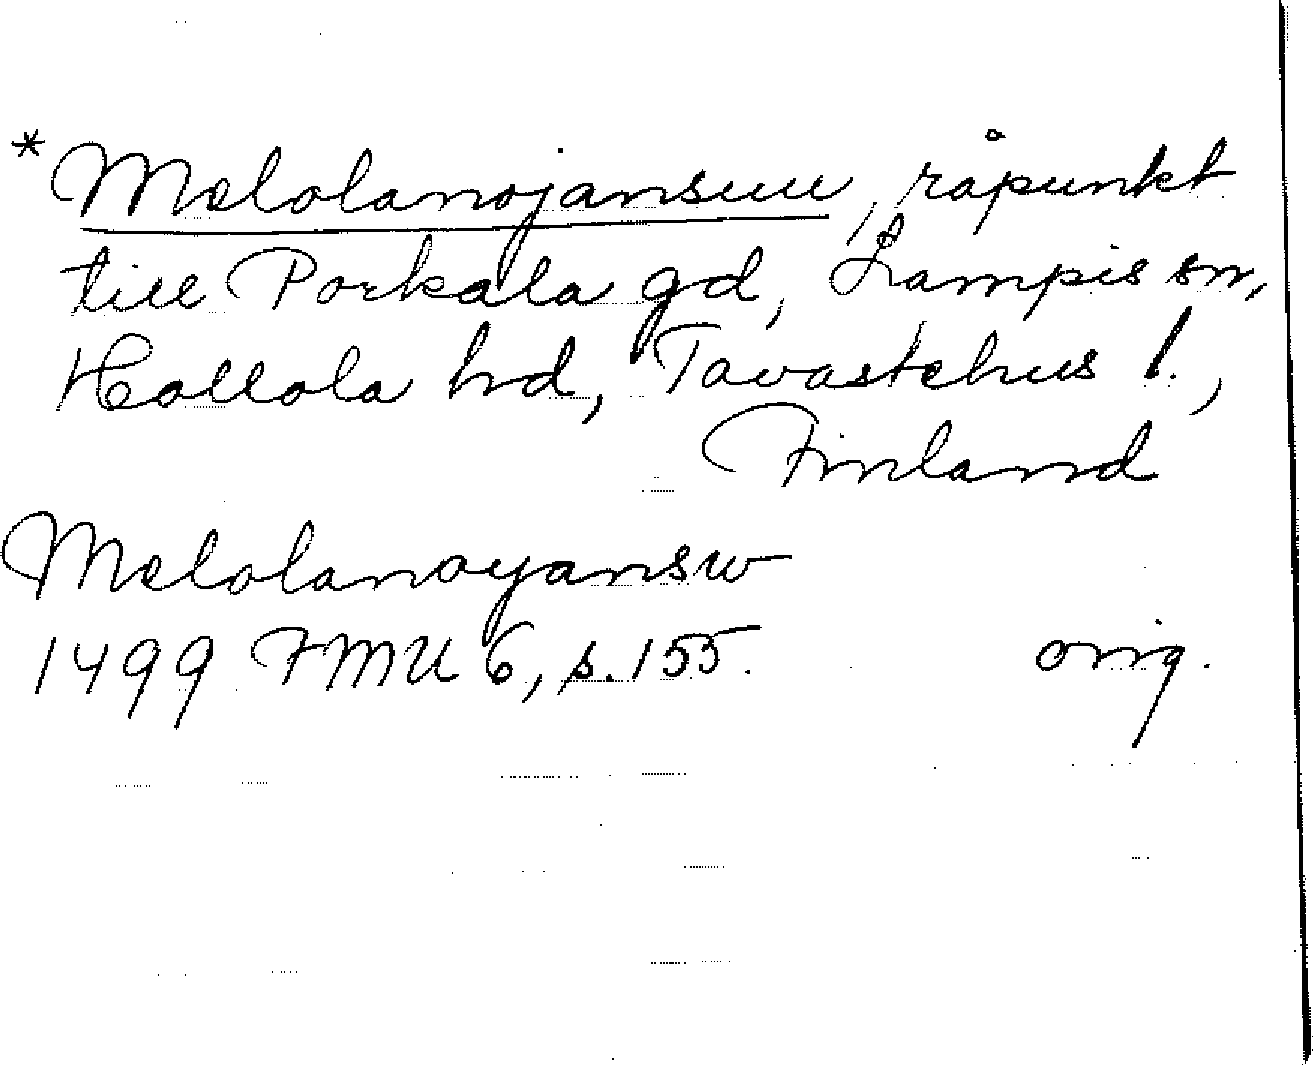 *Melolanojansuu, råpunkt
till Porkala gd, Lampis sn,
Hollola hd, Tavastehus l.,
Finland
Melolanoyansw
1499 FMU 6, s. 155.
orig.